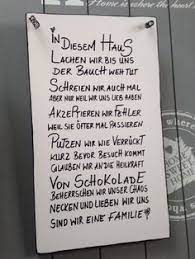 HOME is where the heart is
IN DIESEM HAUS
LACHEN WIR BIS UNS
DER BAUCH WEH TUT
SCHREIEN WIR AUCH MAL
ABER NUR WEIL WIR UNS LIEB HABEN
AKZEPTIEREN WIR FEHLER
WEIL SIE ÖFTER MAL PASSIEREN
PUTZEN WIR WIE VERRÜCKT
KURZ BEVOR BESUCH KOMMT
GLAUBEN WIR AN DIE HEILKRAFT
VON SCHOKOLADE
BEHERRSCHEN WIR UNSER CHAOS
NECKEN UND LIEBEN WIR UNS
SIND WIR EINE FAMILIE